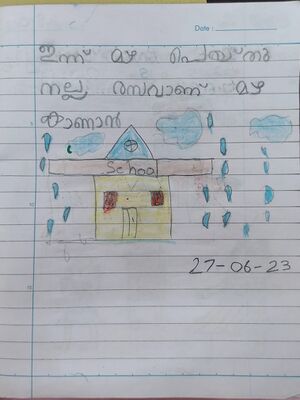 Date :
ഇന്ന് മഴ പെയ്തു
നല്ല രസവാണ് മഴ
കാണാൻ
School
27-06-23